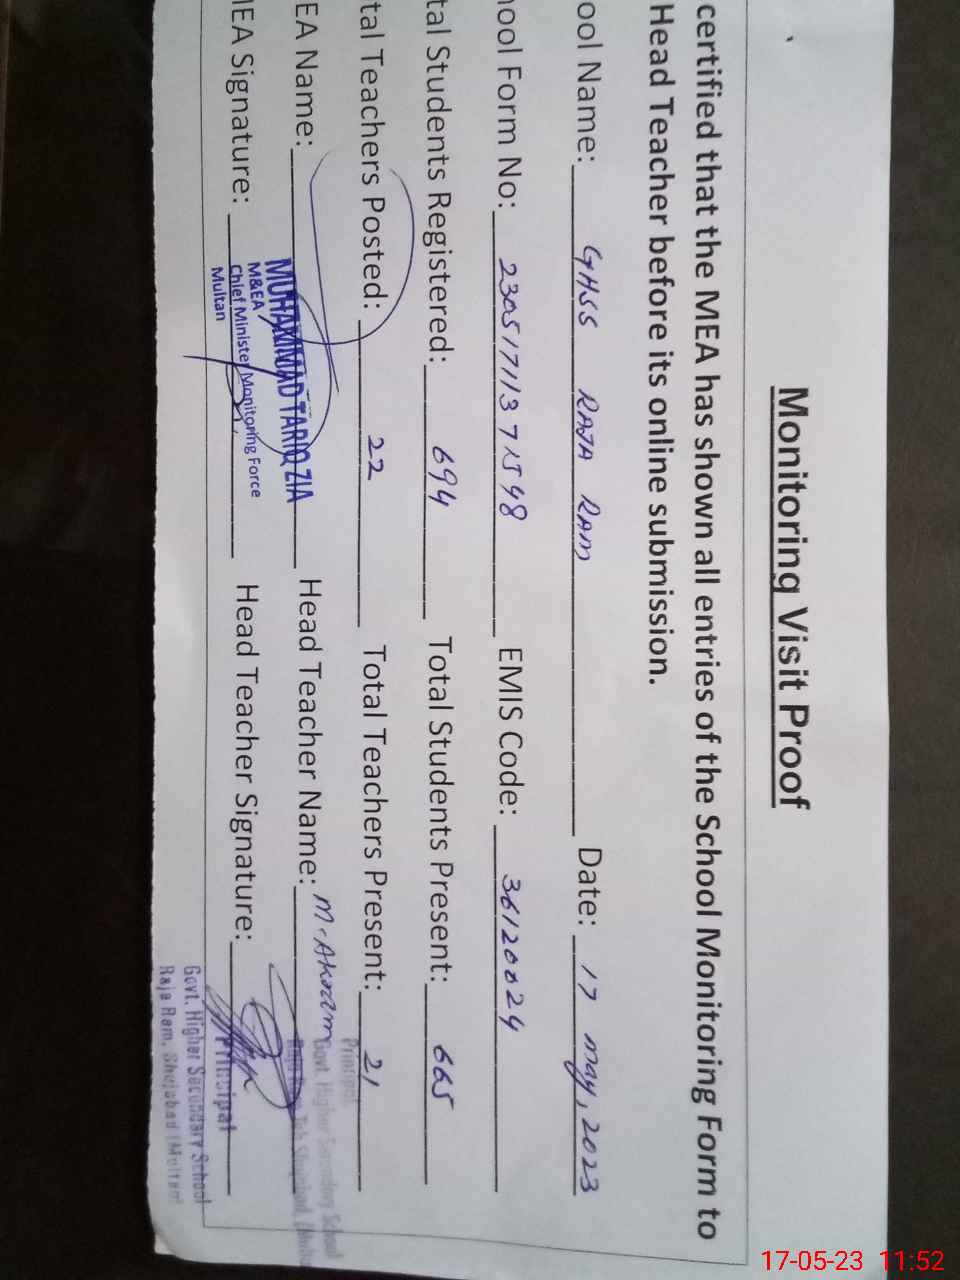 Monitoring Visit Proof
certified that the MEA has shown all entries of the School Monitoring Form to
Head Teacher before its online submission.
ool Name: GHSS RAJA RAM Date: 17 May, 2023
hool Form No: 23051711371548 EMIS Code: 36120024
tal Students Registered: 694 Total Students Present: 665
tal Teachers Posted: 22 Total Teachers Present: 21
EA Name: MUHAMMAD TARIQ ZIA Head Teacher Name: M. Akram
EA Signature: Head Teacher Signature:
M&EA
Chief Minister Monitoring Force
Multan
Principal
Govt. Higher Secondary School
Principal
Govt. Higher Secondary School
Raja Ram, Shujabad (Multan)
17-05-23 11:52